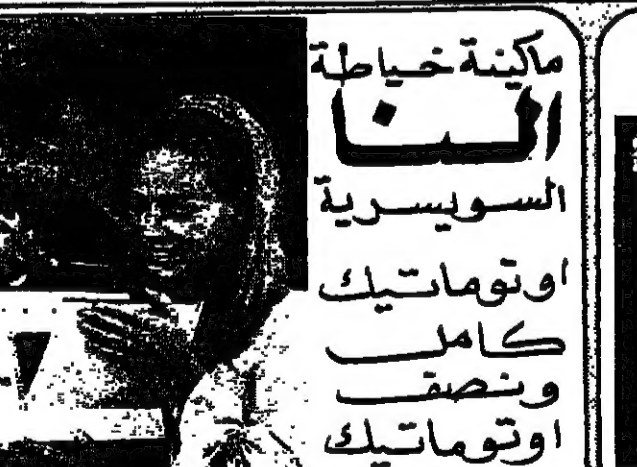 ماكينة خياطة
الينا
السويسرية
اوتوماتيك
كامل
ونصف
اوتوماتيك